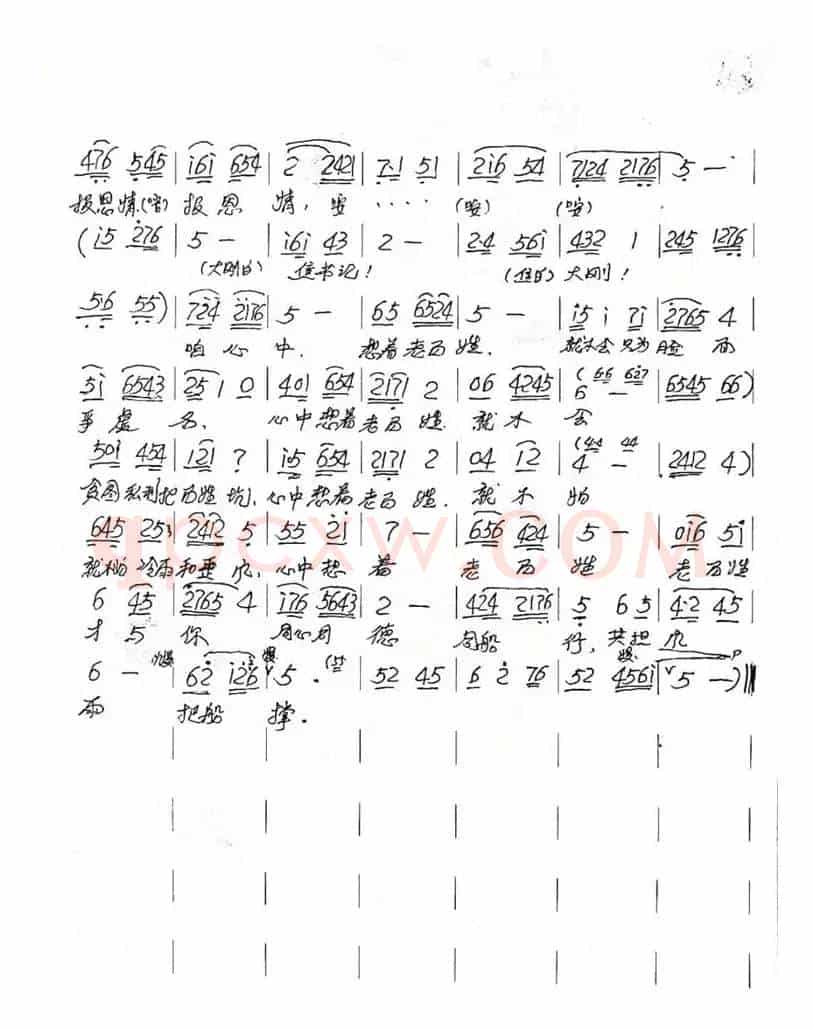 476 545 | i6i 654 | 2 2421 | 7·1 51 | 2i6 54 | 7124 2176 | 5 — |
报恩情(唵) 报恩 情, 安 · · · · (安) (安)
(i5 276 | 5 — | i6i 43 | 2 — | 2·4 56i | 432 1 | 245 1276 |
(大刚白) 侯书记! (侯白) 大刚!
5·6 55) | 724 2176 | 5 — | 65 6524 | 5 — | i5 i 7i | 2765 4
咱心 中. 想着老百 姓. 就不会只为脸 面
5i 6543 | 25 1 0 | 401 654 | 2171 2 | 06 4245 | 6 — (66 627 | 6545 66)
争虚 名. 心中想着老百姓. 就不 会
50i 454 | 121 ? | i5 654 | 2171 2 | 04 i2 | 4 — (44 44 | 2412 4)
贪图私利把百姓坑. 心中想着老百姓. 就不 怕
645 25 | 2412 5 | 55 2i | 7 — | 656 424 | 5 — | 0i6 5i
就不怕冷雨和 心中想 着 老百 姓 老百姓
6 45 | 2765 4 | i76 5643 | 2 — | 424 2176 | 5 6 5 | 4·2 45
才与 你 同心同 德 同船 行, 共担风
6 — | 62 i26 | 5 · | 52 45 | 6 2 76 | 52 456i | 5 —) ‖
雨 把船 撑.
gpcxw.COM